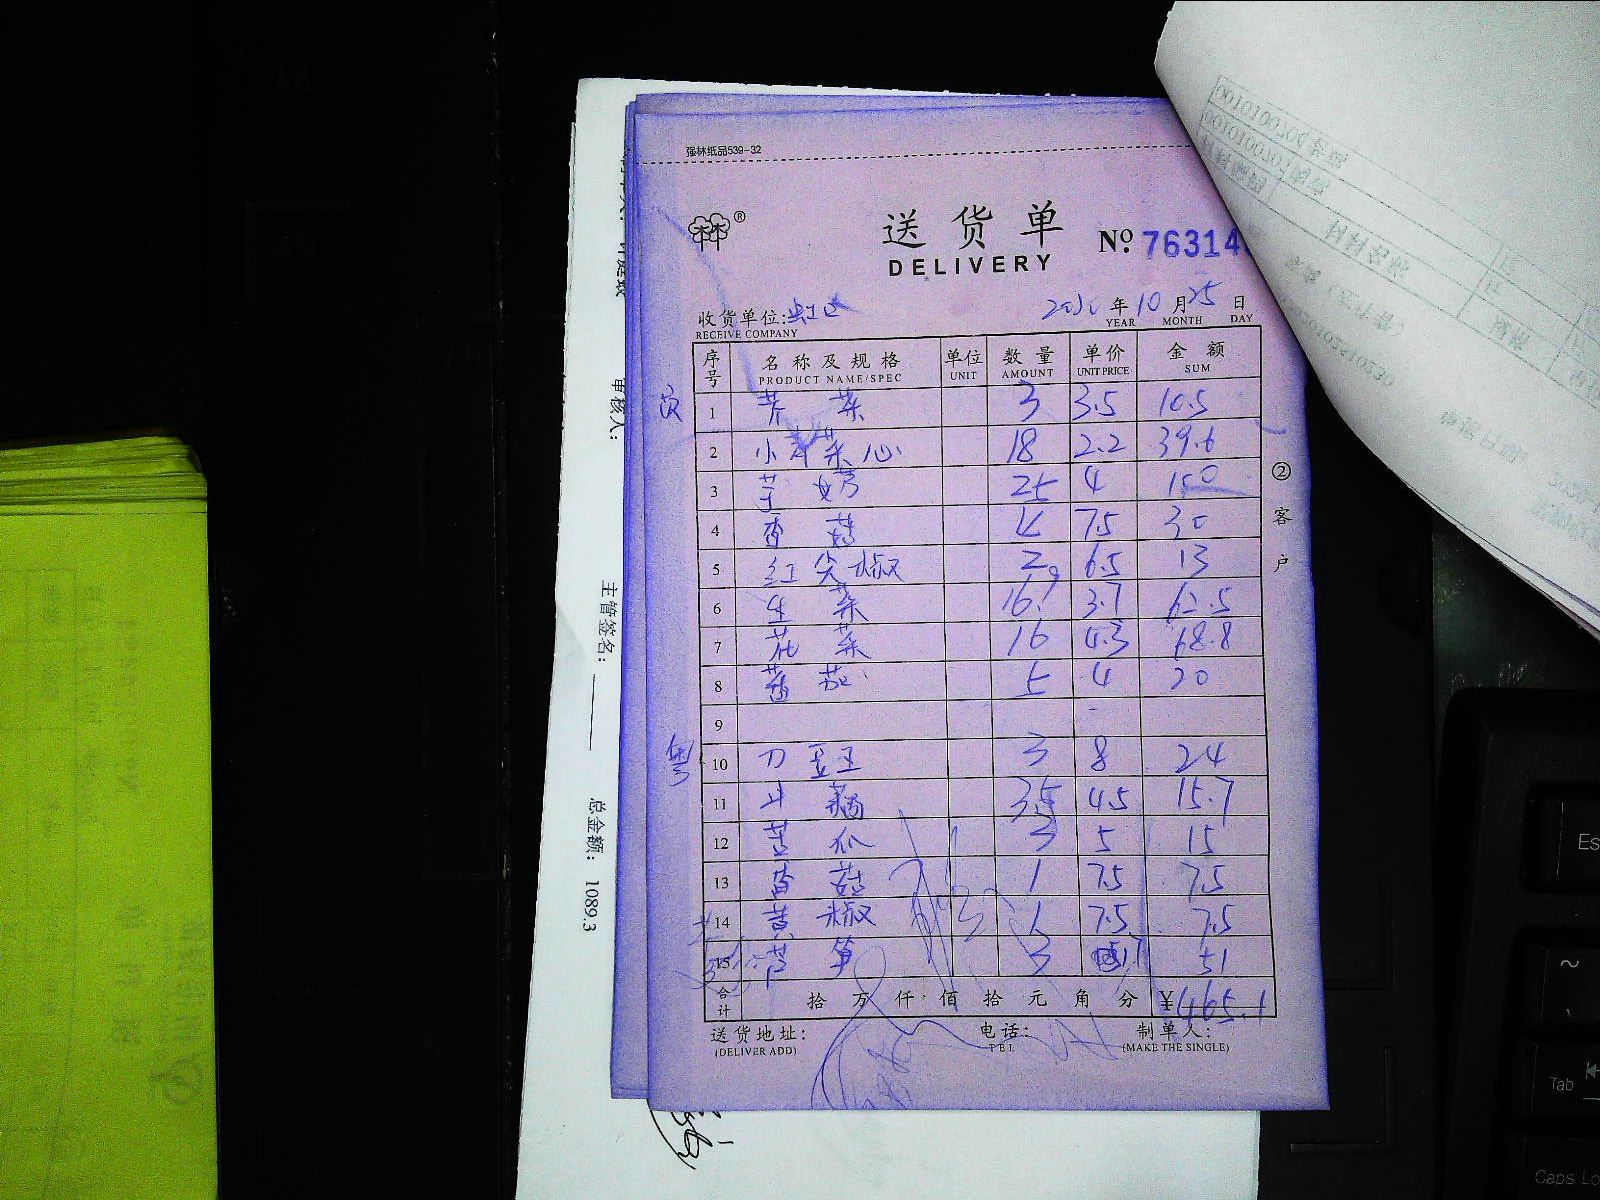 强林纸品539-32
送货单
DELIVERY
No. 76314
收货单位:
RECEIVE COMPANY
年 10 月 25 日
YEAR MONTH DAY
序号 名称及规格 单位 数量 单价 金额
PRODUCT NAME/SPEC UNIT AMOUNT UNIT PRICE SUM
1 芥菜 3 3.5 10.5
2 小 菜心 18 2.2 39.6
3 芋艿 25 4 100
4 香菇 4 7.5 30
5 红尖椒 2 6.5 13
6 生菜 16.9 3.7 62.5
7 花菜 16 4.3 68.8
8 蕃茄 5 4 20
9
粤
10 刀豆王 3 8 24
11 3.5 4.5 15.7
12 苦瓜 3 5 15
13 香菇 1 7.5 7.5
14 黄椒 1 7.5 7.5
15 芦笋 3 17 51
合计 拾 万 仟 佰 拾 元 角 分 ¥465.1
送货地址: 电话: 制单人:
(DELIVER ADD) TEL (MAKE THE SINGLE)
② 客户
审核人:
主管签名:
总金额: 1089.3
Es
~
Tab
Caps Lo